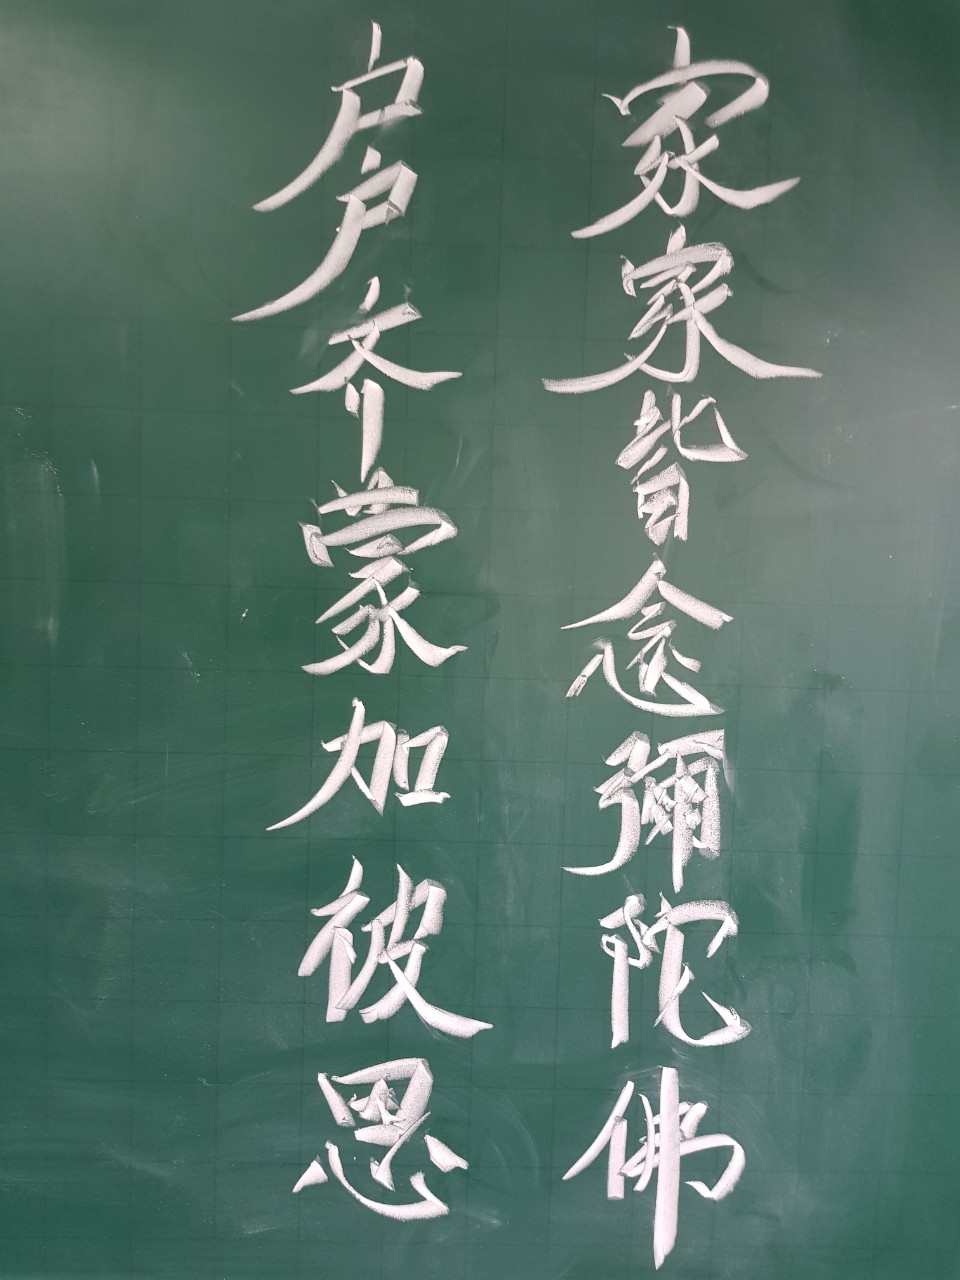 家家皆念彌陀佛
户户齐蒙加被恩